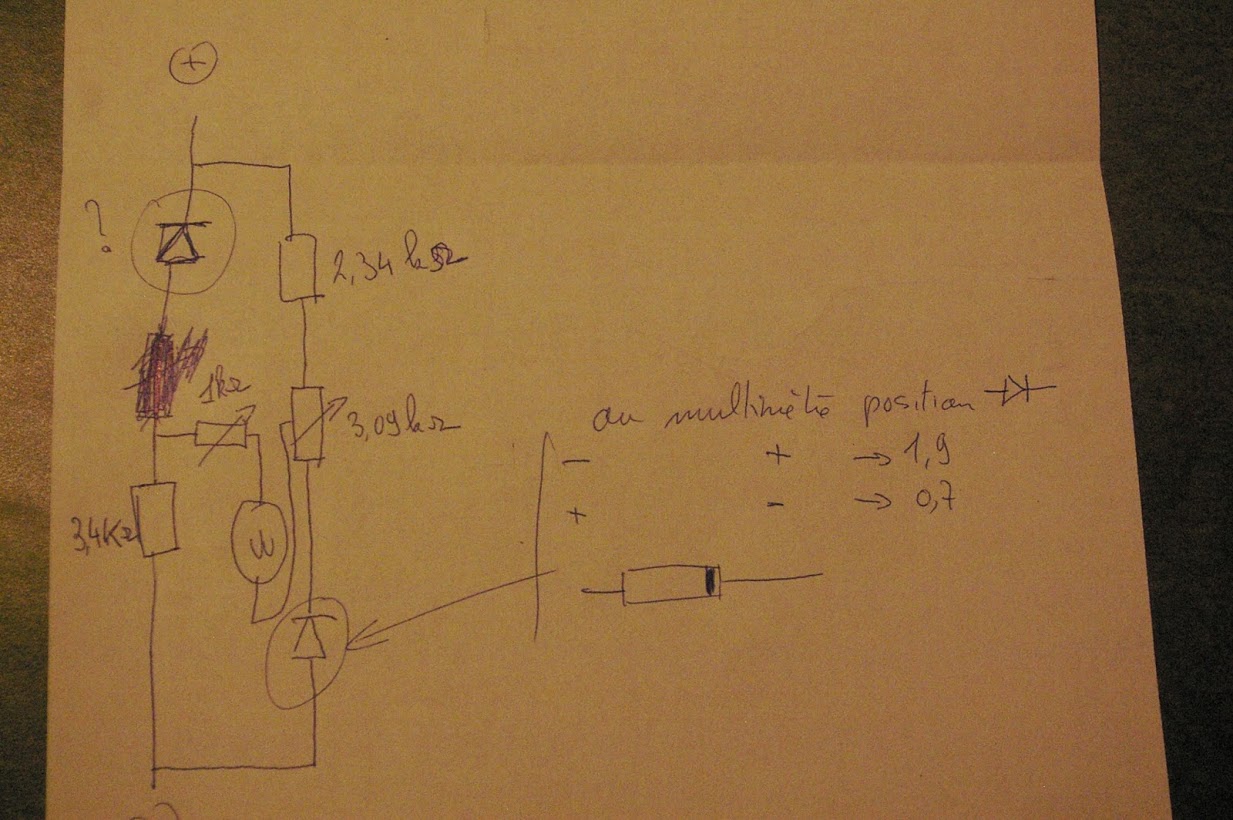 +
?
2,34 kΩ
1kΩ
3,09kΩ
au multimètre position
- + → 1,9
+ - → 0,7
3,4KΩ